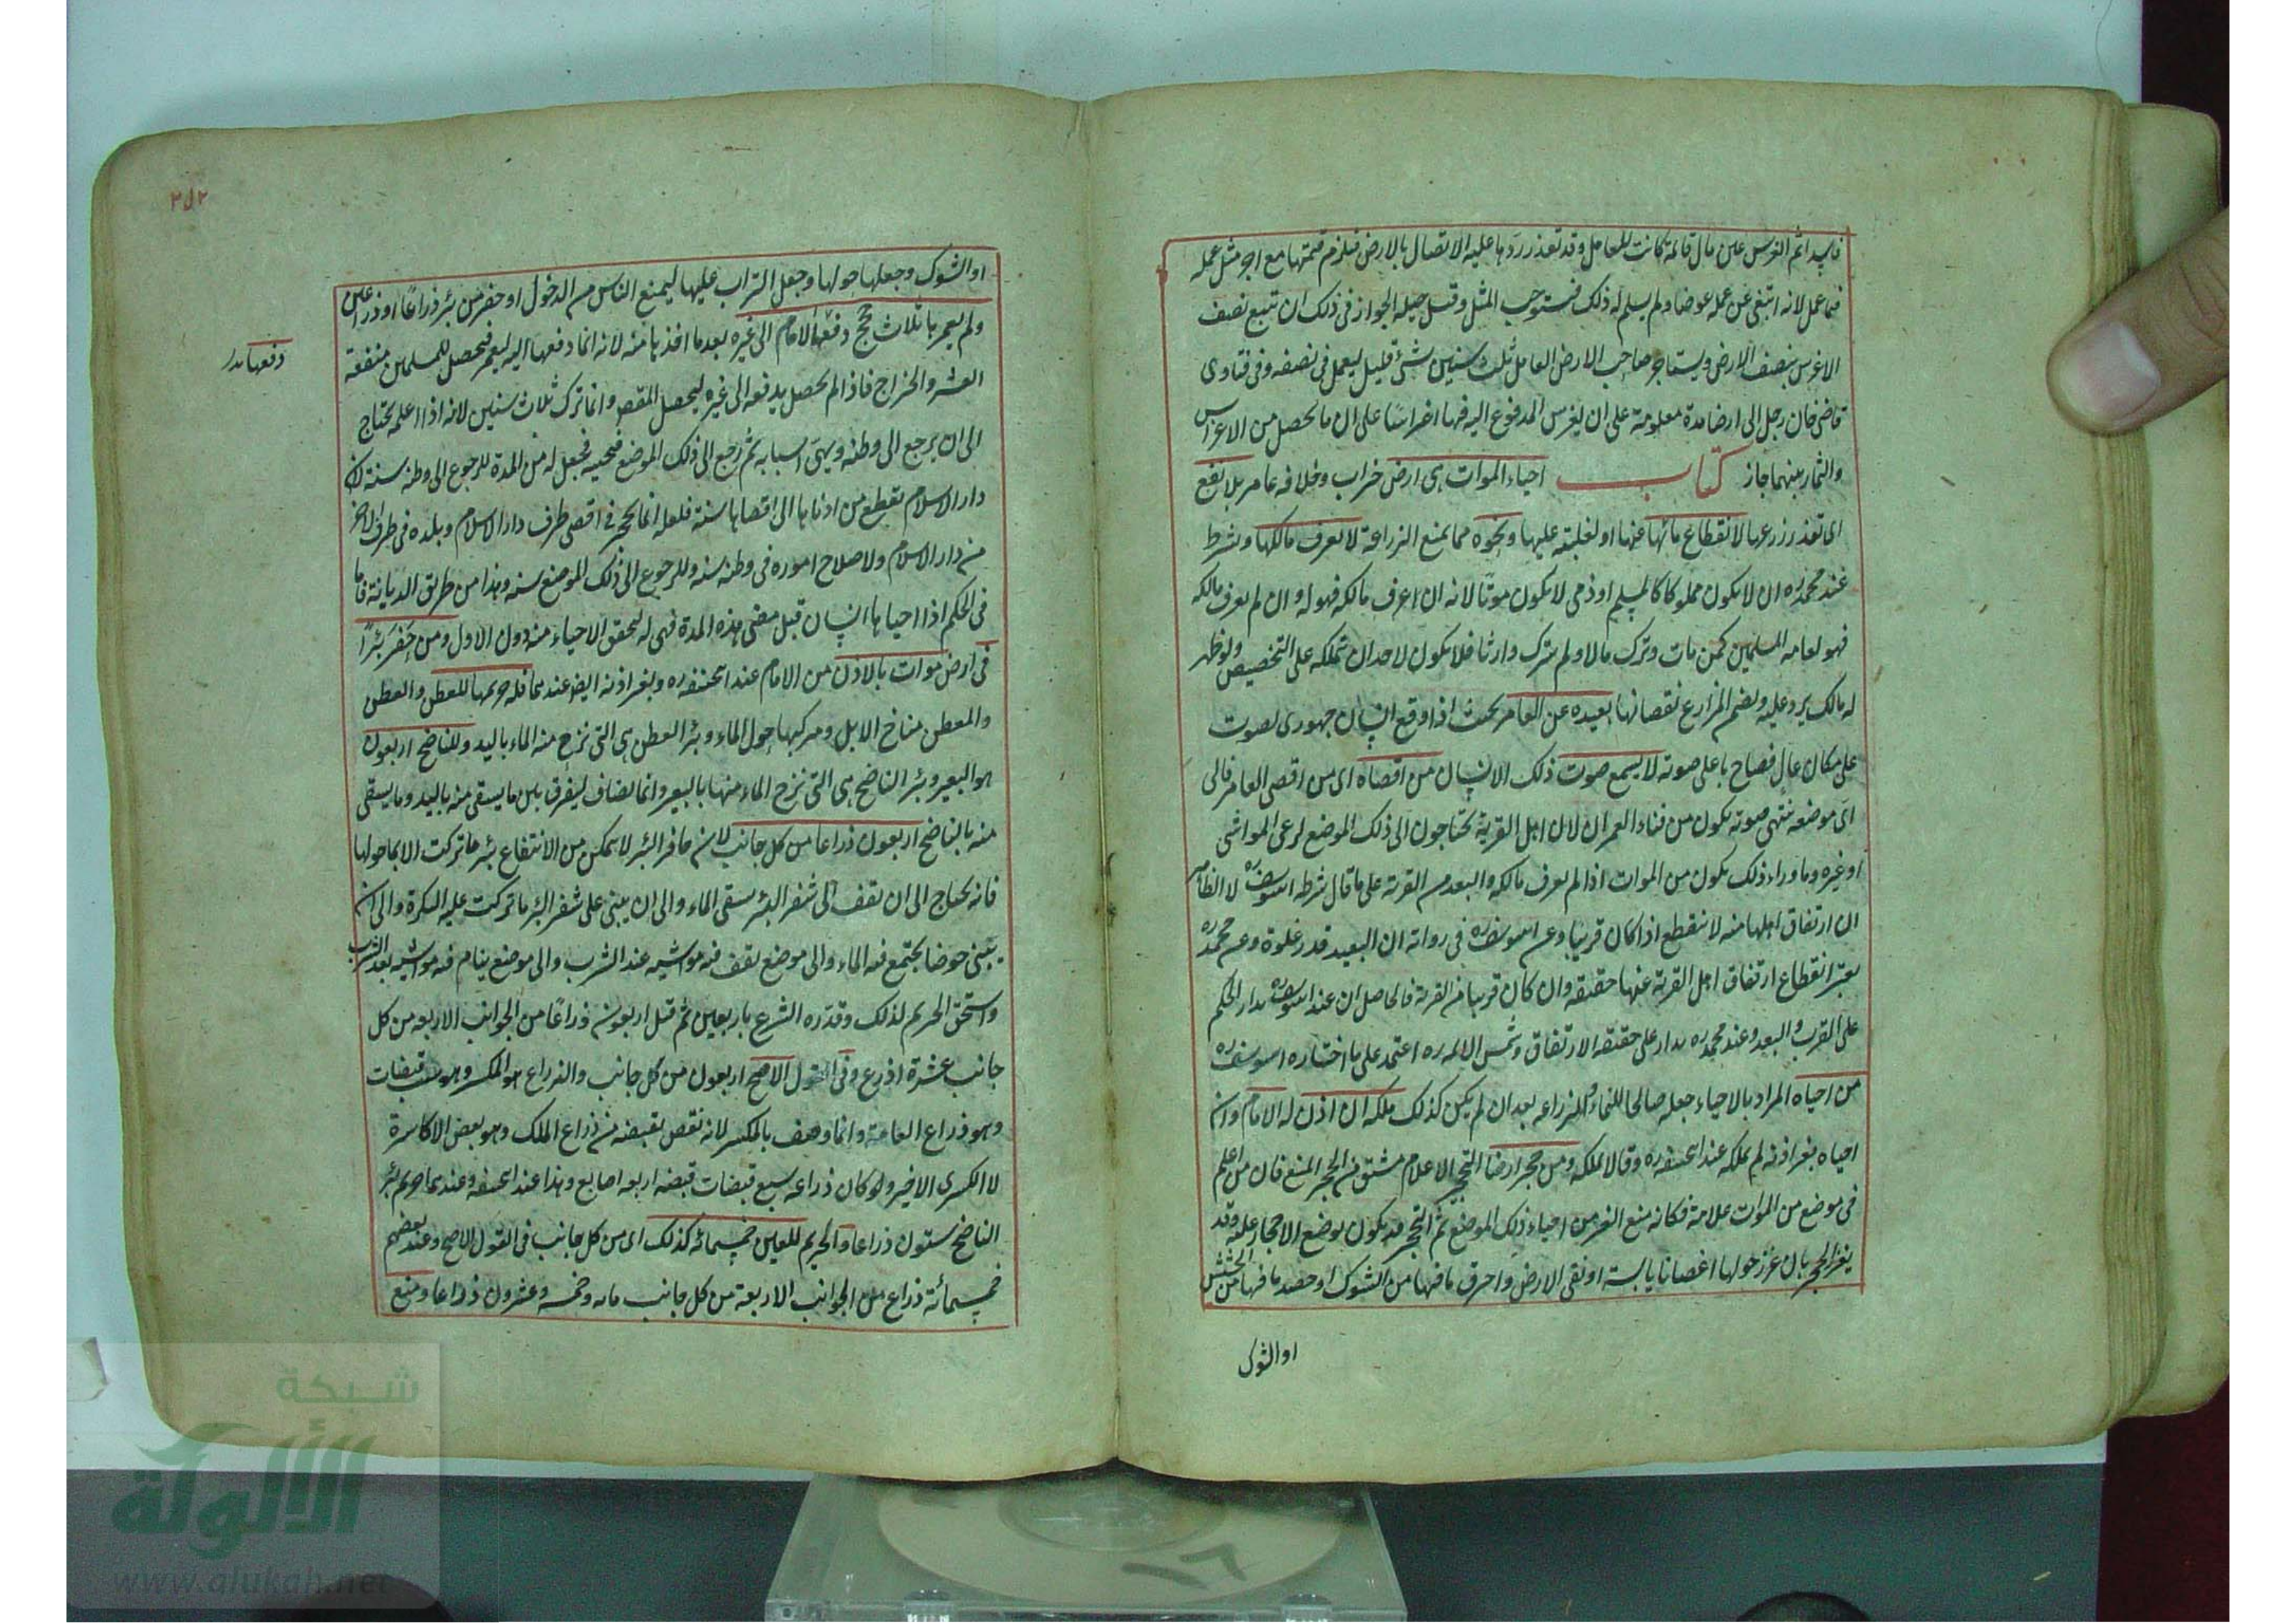 فاسدا ثم الغرس عين مال قائمة كانت للعامل وقد تعذر ردها عليه الاتصال بالارض فيلزم قيمتها مع اجر مثل عمله
فيما عمل لانه ابتغى عن عمله عوضا ولم يسلم له ذلك فيستوجب المثل وقيل حيلة الجواز في ذلك ان تبيع نصف
الاغرس بنصف الارض ويستاجر صاحب الارض العامل ثلث سنين بشئ قليل ليعمل في نصفه وفي فتاوى
قاضى خان رجل الى ارضا مدة معلومة على ان يغرس المدفوع اليه فيها اغراسا على ان ما يحصل من الاغراس
والثمار بينهما جاز كتاب احياء الموات هى ارض خراب وخلافه عامر بلا نفع
اى تعذر زرعها لانقطاع مائها عنها او لغلبته عليها ونحوه مما يمنع الزراعة لا يعرف مالكها ويشرط
عند محمد ره ان لا يكون مملوكا كالمسلم او ذمى لا يكون مواتا لانه ان عرف مالكه فهو له وان لم يعرف مالكه
فهو لعامة المسلمين كمن مات وترك مالا ولم يترك وارثا فلا يكون لاحد ان يتملكه على التخصيص ولو ظهر
له مالك يرد عليه ويضم المزارع نقصانها بعيده عن العامر بحيث اذا وقع انسان جهورى الصوت
على مكان عال فصاح باعلى صوته لا يسمع صوت ذلك الانسان من اقصاه اى من اقصى العامر فالى
اى موضع ينتهى صوته يكون من فناء العمران لان اهل القرية يحتاجون الى ذلك الموضع لرعى المواشى
او غيره وما وراء ذلك يكون من الموات اذا لم يعرف مالكه والبعد من القرية على ما قال شرطه ابو يوسف ره لان الظاهر
ان ارتفاق اهلها منه لا ينقطع اذا كان قريبا وعن ابو يوسف ره في رواية ان البعيد قدر غلوة وعن محمد ره
يعتبر انقطاع ارتفاق اهل القرية عنها حقيقة وان كان قريبا من القرية فالحاصل ان عند ابو يوسف ره يدار الحكم
على القرب والبعد وعند محمد ره يدار على حقيقة الارتفاق وشمس الائمه ره اعتمد على ما اختاره ابو يوسف ره
من احياه المراد بالاحياء جعله صالحا للنماء والزراعة بعد ان لم يكن كذلك ملكه ان اذن له الامام وان
احياه بغير اذنه لم يملكه عند ابى حنيفه ره وقالا يملكه ومن حجر ارضا التحجير الاعلام مشتق من الحجر المنع فان من اعلم
في موضع من الموات علامة فكانه منع الغير من احياء ذلك الموضع ثم التحجير قد يكون بوضع الاحجار عليه وقد
بغير الحجر بان غرز حولها اغصانا يابسة او نقى الارض واحرق ما فيها من الشوك او حصد ما فيها من الحشيش
او الشوك
٢٥٢
او الشوك وجعلها حولها وجعل التراب عليها ليمنع الناس من الدخول او حفر من بئر ذراعا او ذراعين
ولم يعمر ها ثلاث حجج دفعها الامام الى غيره بعد ما اخذها منه لانه انما دفعها اليه ليعمر فيحصل للمسلمين منفعة
دفعها
العشر والخراج فاذا لم يحصل يدفعه الى غيره ليحصل المقصود وانما ترك ثلاث سنين لانه اذا اعلمه يحتاج
الى ان يرجع الى وطنه ويهيئ اسبابه ثم رجع الى ذلك الموضع فيحييه فيجعل له من المدة للرجوع الى وطنه سنة لان
دار الاسلام يقطع من ادناها الى اقصاها سنة فلعله انما يحجر في اقصى طرف دار الاسلام وبلده في طرف الاخر
من دار الاسلام ولاصلاح اموره في وطنه سنة وللرجوع الى ذلك الموضع سنة وهذا من طريق الديانة فاما
في الحكم اذا احياها انسان قبل مضى هذه المدة فهى له لتحقق الاحياء منه دون الاول ومن حفر بئرا
في ارض موات بالاذن من الامام عند ابى حنيفه ره وبغير اذنه ايضا عندهما فله حريمها للعطن والعطن
والمعطن مناخ الابل ومبركها حول الماء وبئر العطن هى التى نزح منه الماء باليد وللناضح اربعون
هو البعير وبئر الناضح هى التى نزح الماء منها بالبعير وانما يضاف ليفرق بين ما يسقى منه باليد وما يسقى
منه بالناضح اربعون ذراعا من كل جانب لان حافر البئر لا يتمكن من الانتفاع ببئره ما تركت الا بما حولها
فانه يحتاج الى ان يقف على شفير البئر يسقى الماء والى ان يبنى على شفير البئر ما تركت عليه البكرة والى ان
يبنى حوضا يجتمع فيه الماء والى موضع يقف فيه مواشيه عند الشرب والى موضع ينام فيه مواشيه بعد الشرب
واستحق الحريم لذلك وقدره الشرع باربعين ثم قيل اربعون ذراعا من الجوانب الاربعه من كل
جانب عشرة اذرع وفى القول الاصح اربعون من كل جانب والذراع هو المكسر وهو ست قبضات
وهو ذراع العامة وانما وصف بالمكسر لانه نقص بقبضه من ذراع الملك وهو بعض الاكاسرة
لا الكسرى الاخير ولو كان ذراعه سبع قبضات قبضه اربعه اصابع وهذا عند ابى حنيفه وعندهما حريم بئر
الناضح ستون ذراعا والحريم للعين خمسمائه كذلك اى من كل جانب في القول الاصح وعند بعضهم
خمسمائة ذراع من الجوانب الاربعة من كل جانب مائه وخمسه وعشرون ذراعا ومنع
شبكة
الألوكة
www.alukah.net